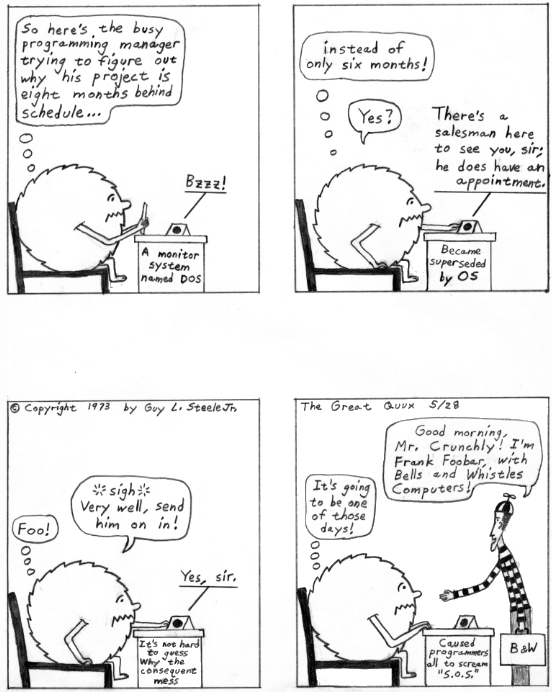 So here's the busy
programming manager
trying to figure out
why his project is
eight months behind
schedule...
Bzzz!
A monitor
system
named DOS
instead of
only six months!
Yes?
There's a
salesman here
to see you, sir;
he does have an
appointment.
Became
superseded
by OS
© Copyright 1973 by Guy L. Steele Jr.
Foo!
*sigh*
Very well, send
him on in!
Yes, sir.
It's not hard
to guess
Why the
consequent
mess
The Great Quux 5/28
It's going
to be one
of those
days!
Good morning,
Mr. Crunchly! I'm
Frank Foobar, with
Bells and Whistles
Computers!
Caused
programmers
all to scream
"S.O.S."
B&W